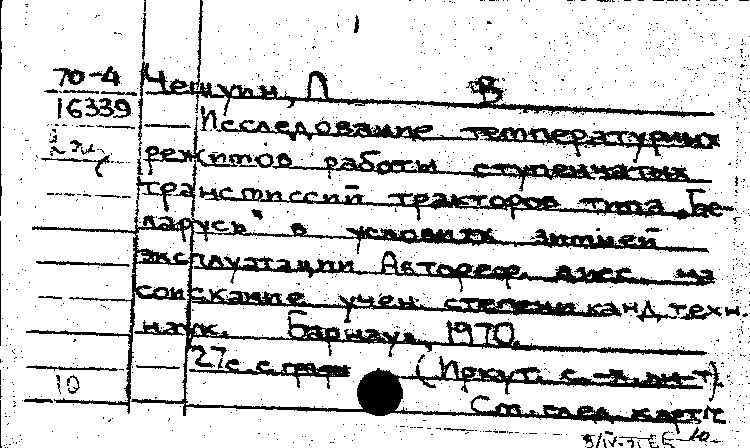 70-4 Чешуин, Л В
16339 Исследование температурных
2 экз режимов работы ступенчатых
трансмиссий тракторов типа „Бе-
ларусь" в условиях зимней
эксплуатации Автореф. дисс. на
соискание учен степени канд. техн.
наук. Барнаул, 1970.
27с. с граф (Иркут. с.-х. ин-т).
10 См. след. карт